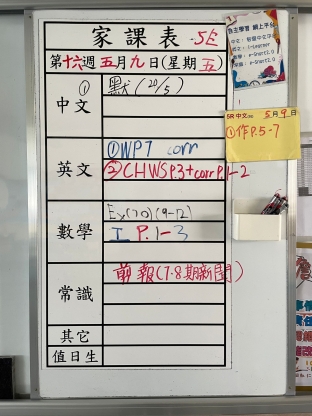 家課表 5E
第十六週五月九日(星期五)
中文 ① 默(20/5)
英文 ①WP7 corr
②CHWS P.3+corr P.1-2
數學 Ex(70)(9-12)
I P.1-3
常識 剪報(7-8期新聞)
其它
值日生
自主學習 網上平台
5R 中文 5月9日
①作P.5-7